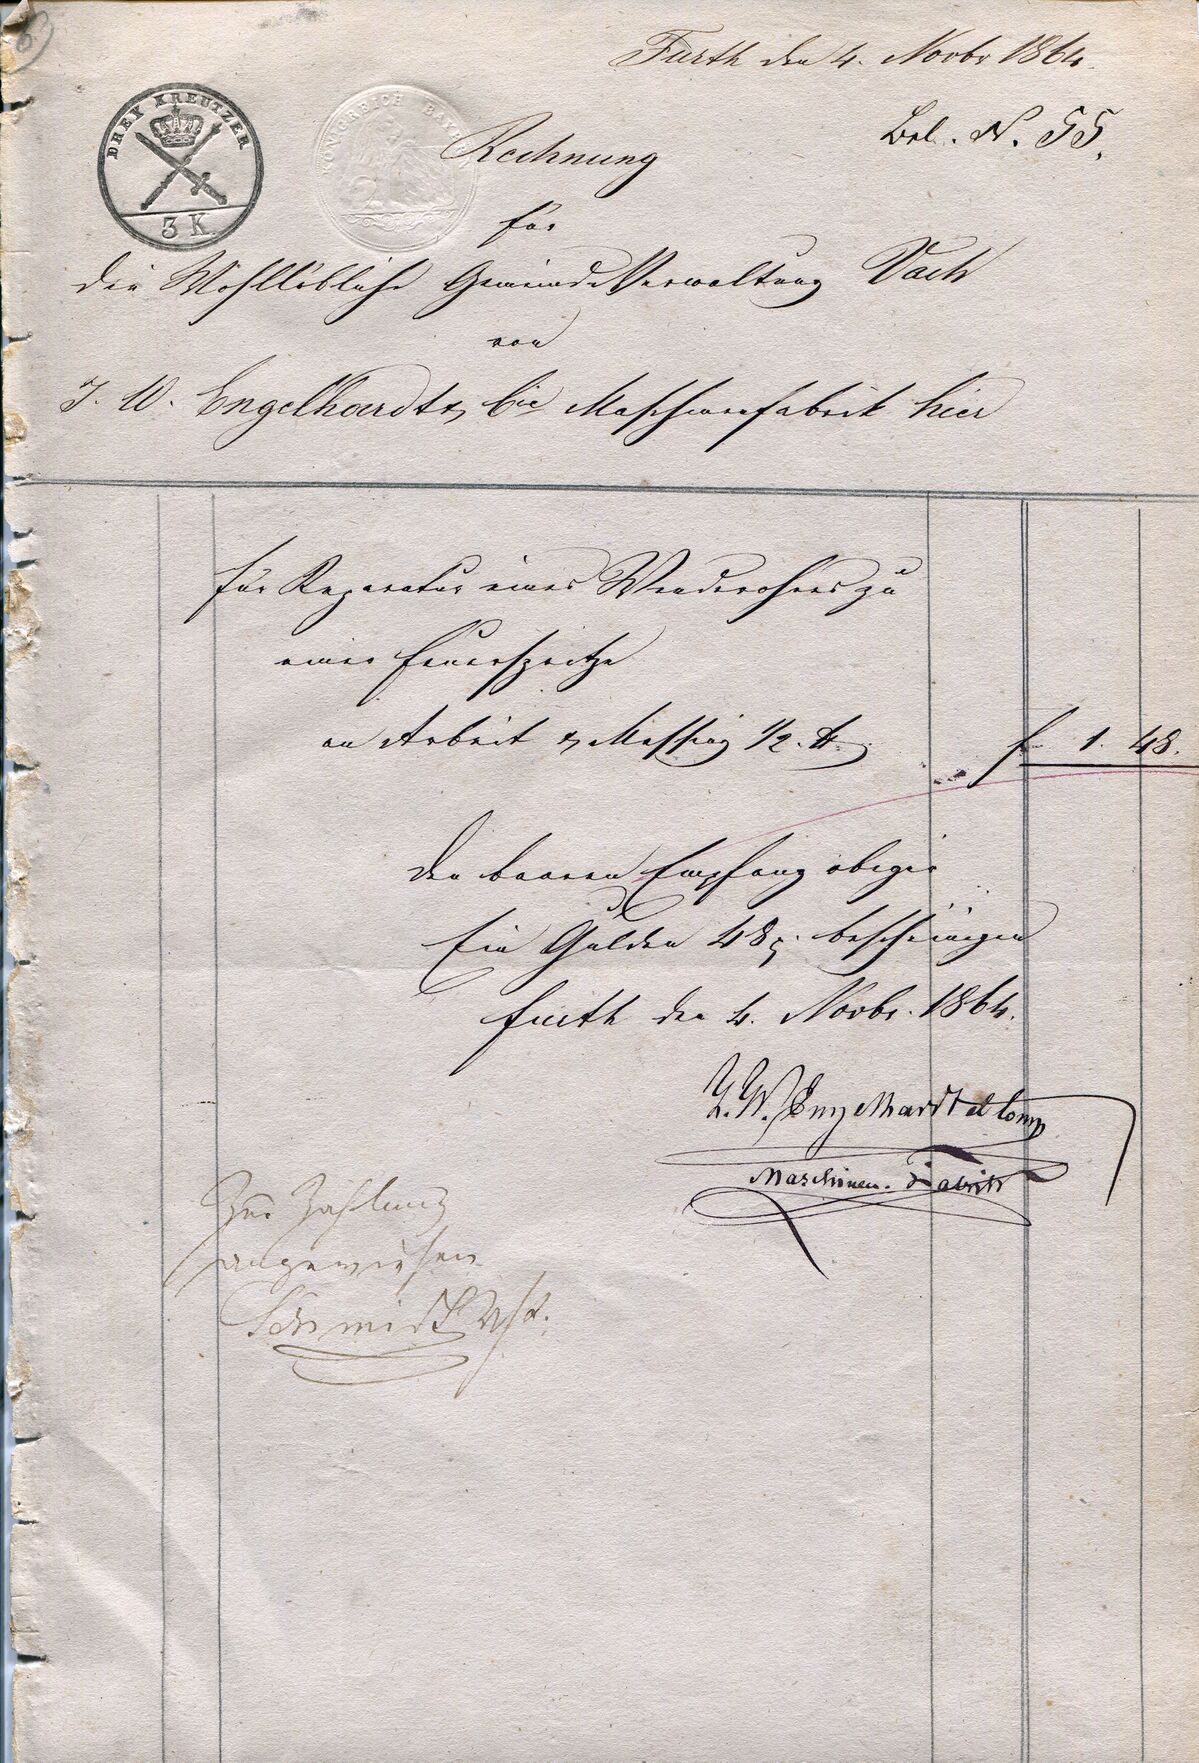 6)
Fürth den 4. Novbr 1864.
DREY KREUTZER
3 K.
KOENIGREICH BAYERN
Bel. N. 55.
Rechnung
für
die Wohllöbliche Gemeinde Verwaltung Vach
von
J. W. Engelhardt & Cie Maschinenfabrik hier
für Reparatur eines Wenderohres zu
einer Feuerspritze
an Arbeit & Messing ½ ℔
f 1. 48.
Den baaren Empfang obiger
Ein Gulden 48 x. bescheinigen
Fürth den 4. Novbr. 1864.
J. W. Engelhardt et Comp
Maschinen-Fabrik
Zur Zahlung
angewiesen
Schmidt Vst.